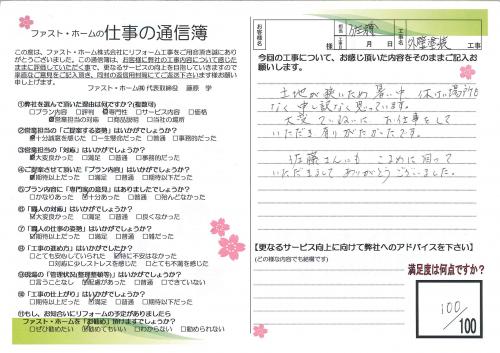 ファスト・ホームの仕事の通信簿
この度は、ファスト・ホーム株式会社にリフォーム工事をご用命頂き誠にあり
がとうございました。この通信簿は、お客様に弊社の工事内容について感じた
ままに評価していただく事で、更なるサービスの向上を目指していきますので
率直なご意見をご記入頂き、同封の返信用封筒にてご返送下さいます様お願い
申し上げます。
ファスト・ホーム㈱ 代表取締役 藤原 学
①弊社を選んで頂いた理由は何ですか?(複数可)
□プラン内容 □評判 □専門性 □サービス内容 □価格
□営業担当の対応 □商品説明 □当社の場所
②営業担当の「ご提案する姿勢」はいかがでしたか?
□十分誠意を感じた □一生懸命だった □普通 □事務的だった
③営業担当の「対応」はいかがでしたか?
□大変良かった □満足 □普通 □事務的だった
④ご提案させて頂いた「プラン内容」はいかがでしたか?
□期待以上だった □満足 □普通 □期待以下だった
⑤プラン内容に「専門家の意見」はありましたでしょうか?
□かなりあった □十分あった □普通 □殆んどなかった
⑥「職人の対応」はいかがでしたでしょうか?
□大変良かった □満足 □普通 □良くなかった
⑦「職人の仕事の姿勢」はいかがでしたでしょうか?
□期待以上だった □満足 □普通 □雑だった
⑧「工事の進め方」はいかがでしたでしょうか?
□とても安心していられた □特に不安はなかった
□対応に少しストレスを感じた □とても不満を感じた
⑨現場の「管理状況(整理整頓等)」はいかがでしたでしょうか?
□言うことなし □配慮があった □普通 □できていない
⑩「工事の仕上がり」はいかがでしたでしょうか?
□期待以上だった □満足 □普通 □期待以下だった
⑪もし、お知合いにリフォームの予定がありましたら
ファスト・ホームを「お勧め」頂けますでしょうか?
□ぜひ勧めたい □勧めてもいい □わからない □勧められない
お客様名
様
担当 佐藤
月 日
工事名 外壁塗装 工事
今回の工事について、お感じ頂いた内容をそのままご記入お
願いします。
土地が狭いため暑い中 休む場所も
なく申し訳なく思っています。
大変ていねいに お仕事をして
いただき ありがたかったです。
佐藤さんにも こまめに回って
いただきまして ありがとうございました。
【更なるサービス向上に向けて弊社へのアドバイスを下さい】
(どの様な内容でも結構です)
満足度は何点ですか?
100
/100